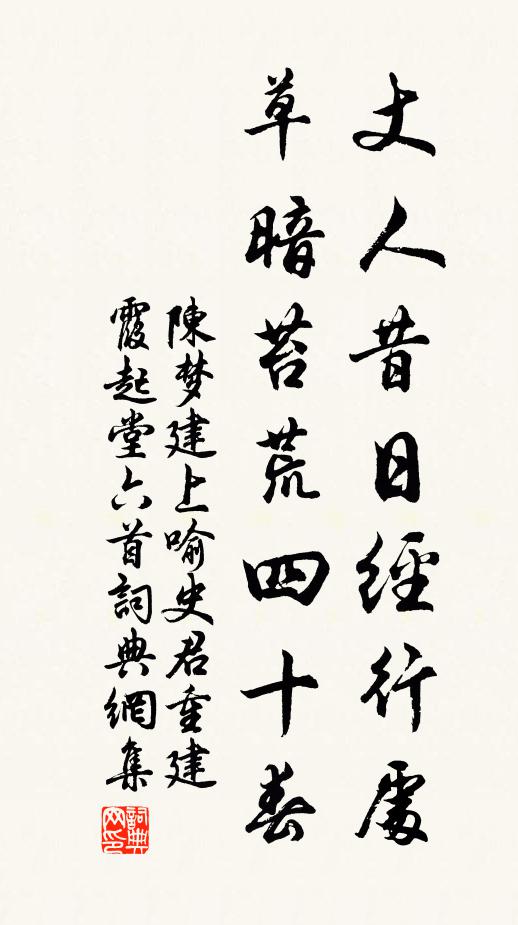 丈人昔日經行處
草暗苔荒四十春
陳梦建上喻史君重建
霞起堂六首詞典網集
詞典网印